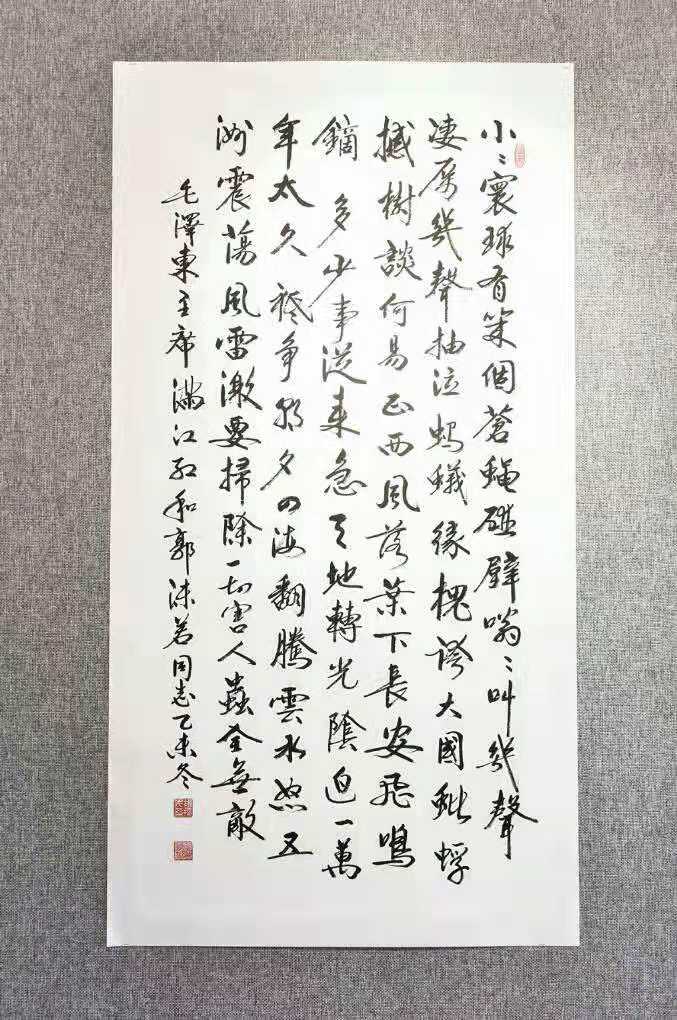 小〻寰球有幾個蒼蠅碰壁嗡〻叫幾聲
凄厲幾聲抽泣螞蟻緣槐誇大國蚍蜉
撼樹談何易正西風落葉下長安飛鳴
鏑多少事從來急天地轉光陰迫一萬
年太久祗爭朝夕四海翻騰雲水怒五
洲震蕩風雷激要掃除一切害人蟲全無敵
毛澤東主席滿江紅和郭沫若同志乙未冬